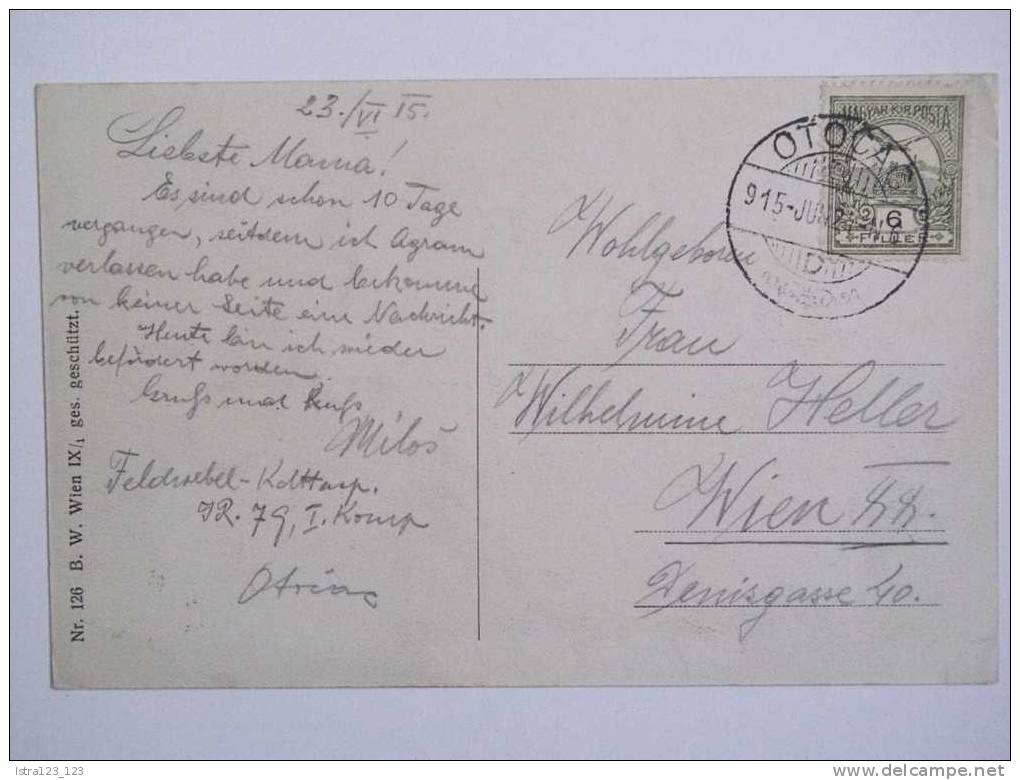 23./VI 15.
Liebste Mama!
Es sind schon 10 Tage
vergangen, seitdem ich Agram
verlassen habe und bekomme
von keiner Seite eine Nachricht.
Heute bin ich wieder
befördert worden.
Gruss und Kuss
Miloš
Feldwebel-
IR. 79, I. Komp
Nr. 126 B. W. Wien IX/1 ges. geschützt.
MAGYAR KIR. POSTA
6
FILLÉR
OTOČAC
915-JUN
D
Wohlgeboren
Frau
Wilhelmine Heller
Wien XX.
Denisgasse 40.
Istra123_123
delcampe.net